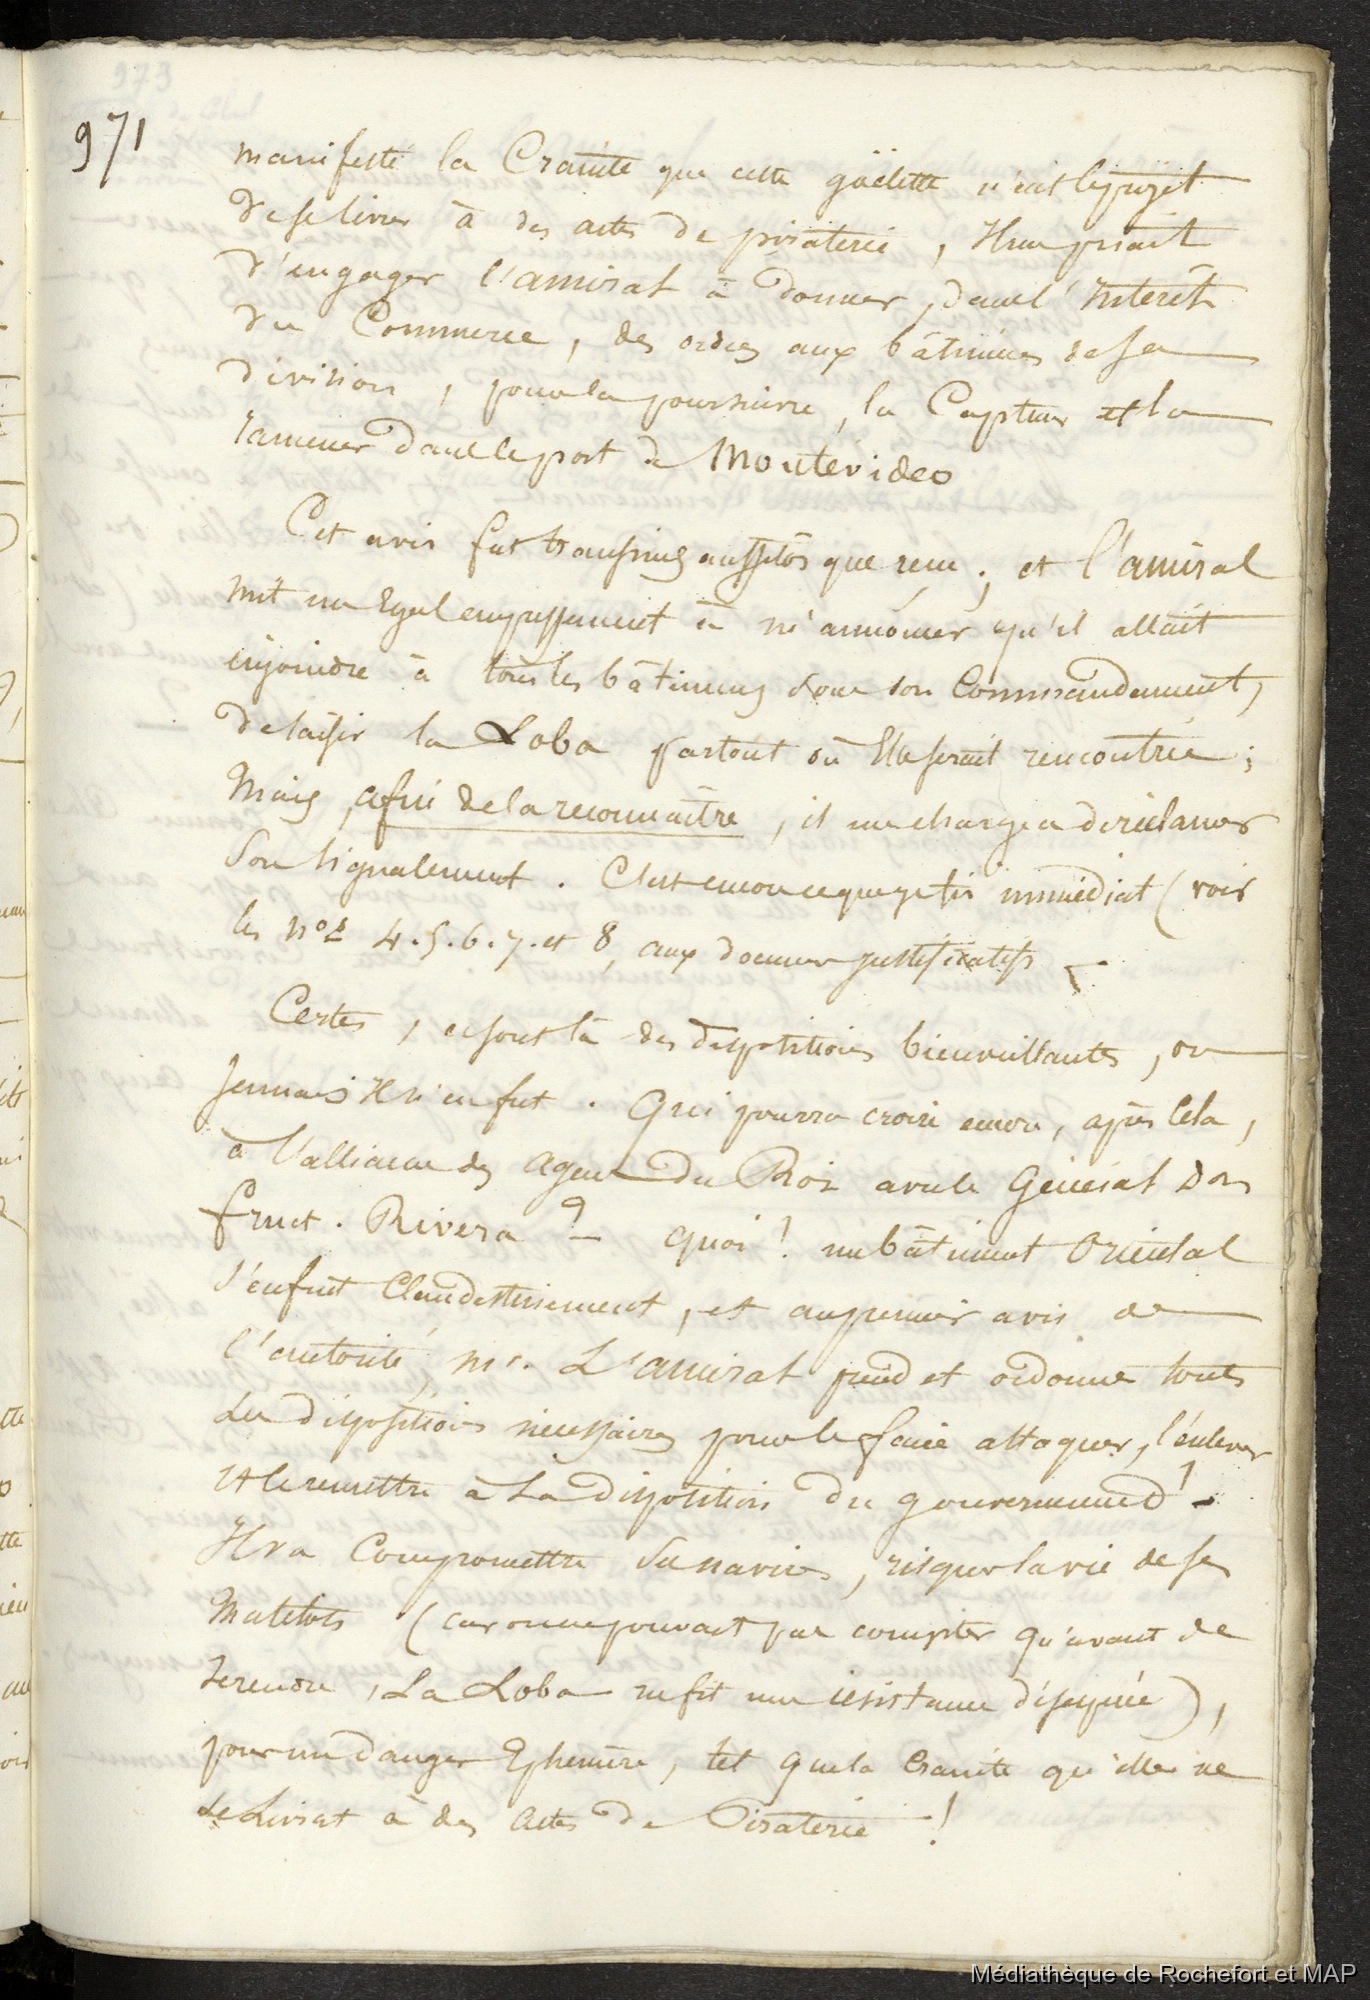 971
manifesté la Crainte que cette göelette n'eut le projet
de se livrer à des actes de piraterie, Il me priait
d'engager l'amiral à donner, dans l'Intérêt
du Commerce, des ordres aux bâtimens de sa
division, pour la poursuivre, la Capturer et la
ramener dans le port de Montévideo
Cet avis fut transmis aussitôt que recu ; et l'amiral
mit un Egal empressement à m'annoncer qu'il allait
enjoindre à tous les bâtimens sous son Commandement,
de saisir la Loba partout où Elle serait rencontrée ;
Mais, afin de la reconnaître, il me chargea de réclamer
Son signalement. C'est encore ce que je fis immédiat (voir
les nos 4. 5. 6. 7. et 8, aux docum justificatifs
Certes, ce sont là des dispositions bienveillantes, ou
jamais Il n'en fut. Qui pourra croire encore, après Cela,
à l'alliance des agens du Roi avec le Général Don
fruct. Rivera ? – quoi ! un bâtiment Oriental
s'enfuit Clandestinement, et au premier avis de
l'autorité, mr. L'amiral prend et ordonne toutes
Les dispositions nécessaires pour le faire attaquer, l'enlever
Et le remettre à La disposition du gouvernement ! -
Il va Compromettre Ses navires, risquer la vie de ses
Matelots (car on ne pouvait pas compter qu'avant de
se rendre, La Loba ne fit une résistance désespérée),
pour un danger Ephemère, tel que la Crainte qu'elle ne
se Livrat à des Actes de Piraterie !
Médiathèque de Rochefort et MAP